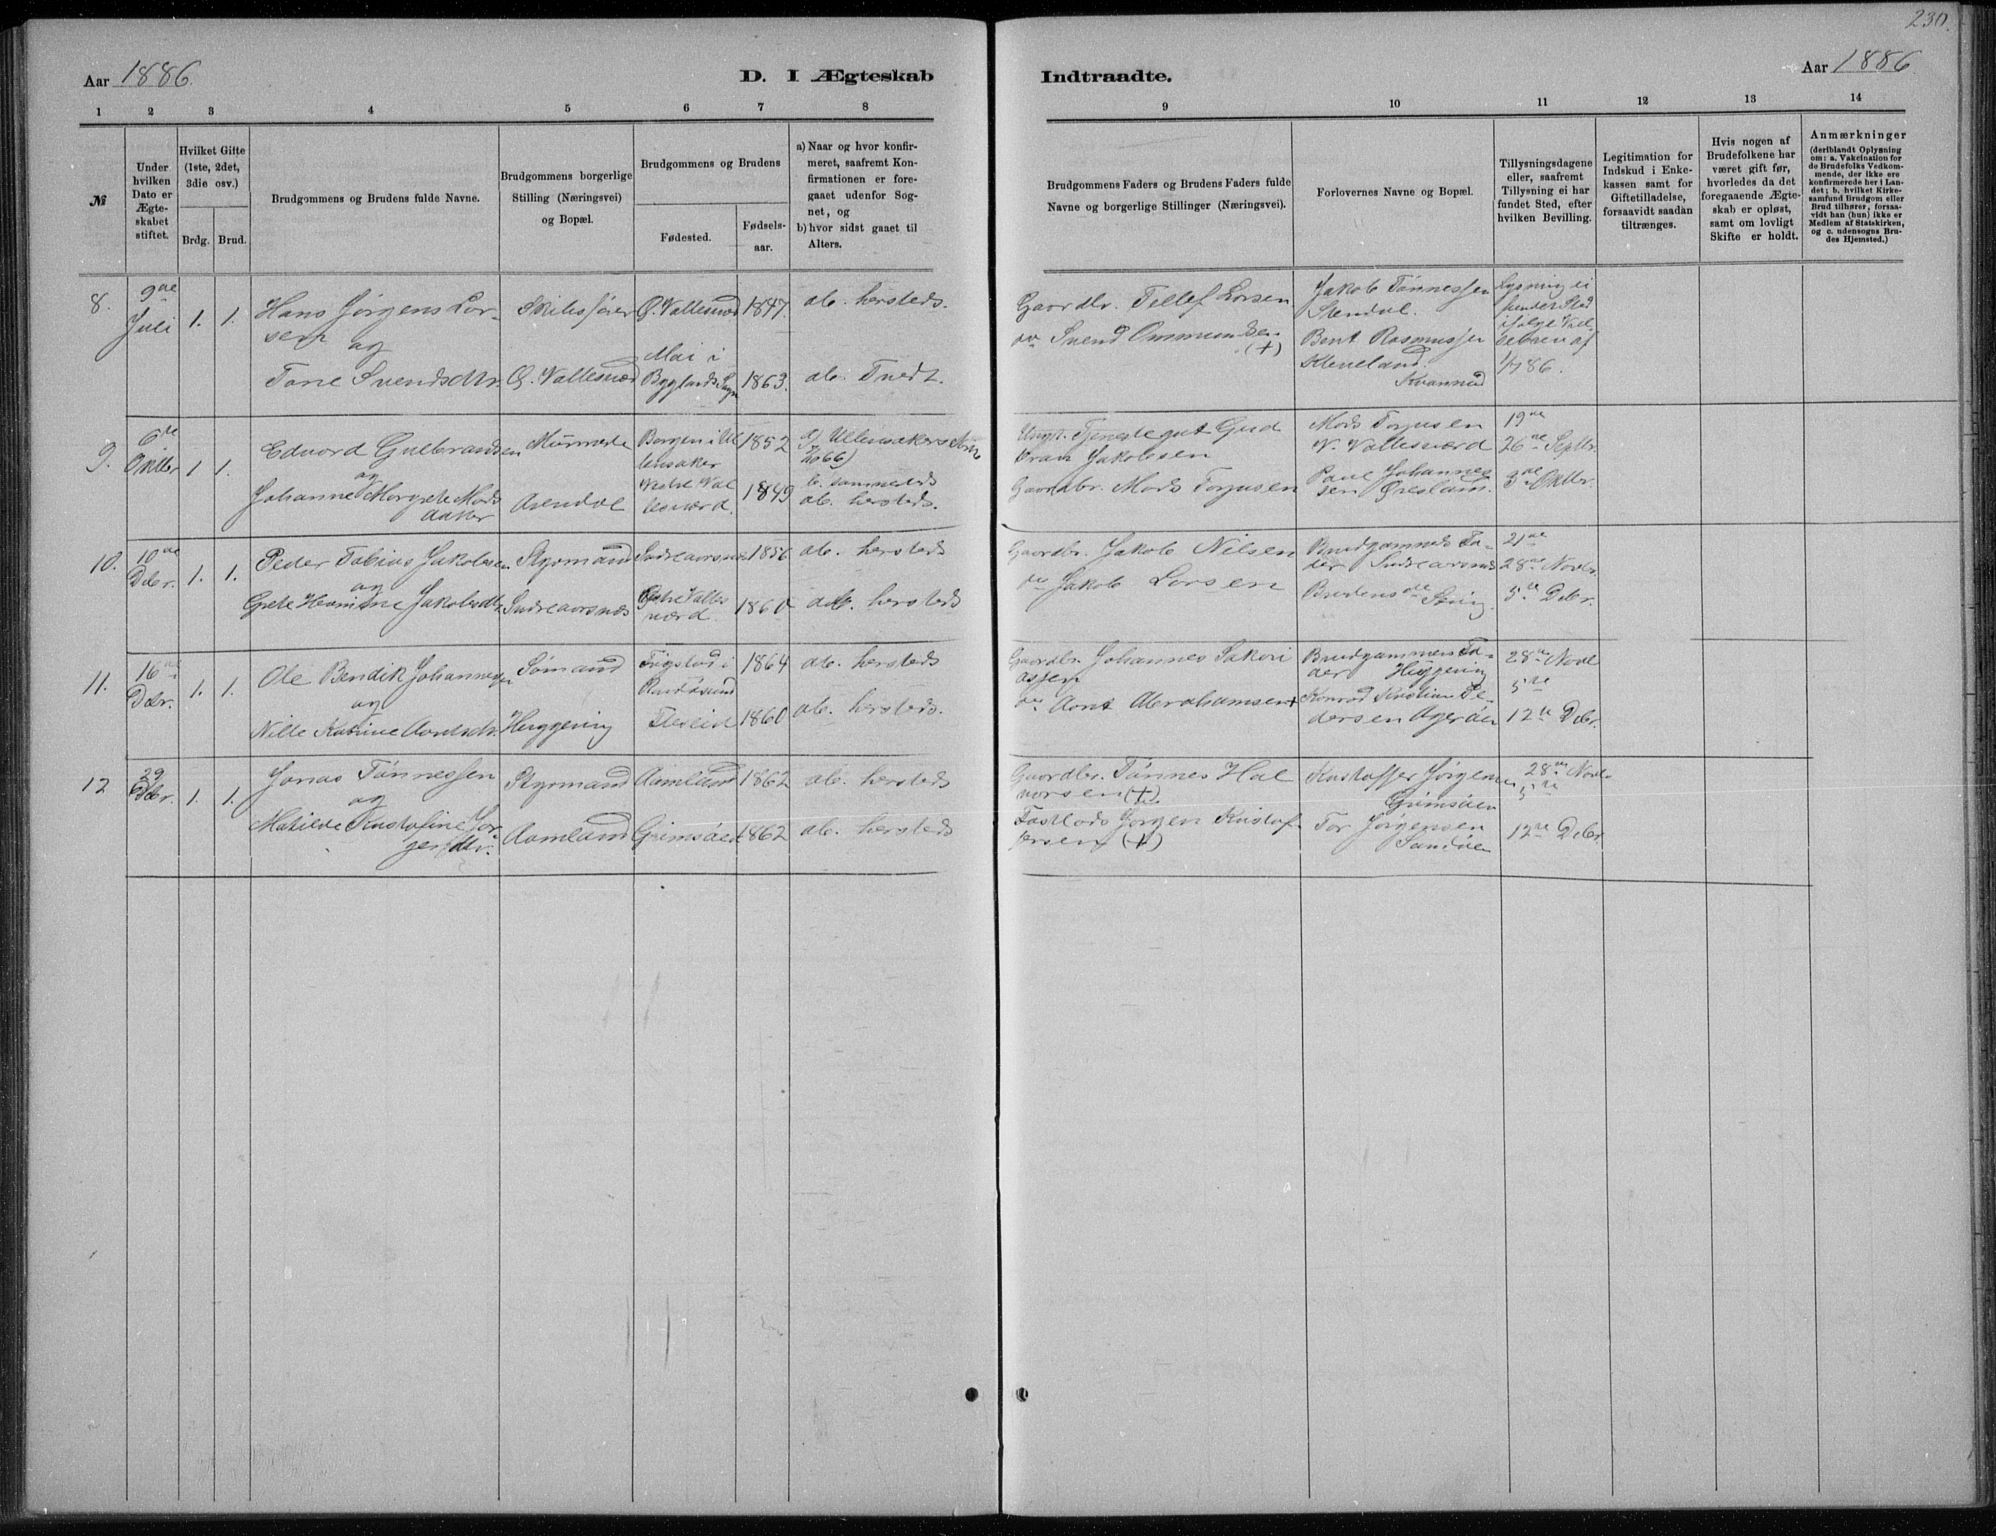 230.
Aar 1886.
D. I Ægteskab
Indtraadte.
Aar 1886.
1 2 3 4 5 6 7 8
9 10 11 12 13 14
№
Under hvilken Dato er Ægteskabet stiftet.
Hvilket Gifte (1ste, 2det, 3die osv.)
Brdg. Brud.
Brudgommens og Brudens fulde Navne.
Brudgommens borgerlige Stilling (Næringsvei) og Bopæl.
Brudgommens og Brudens
Fødested.
Fødselsaar.
a) Naar og hvor konfirmeret, saafremt Konfirmationen er foregaaet udenfor Sognet, og
b) hvor sidst gaaet til Alters.
Brudgommens Faders og Brudens Faders fulde Navne og borgerlige Stillinger (Næringsvei).
Forlovernes Navne og Bopæl.
Tillysningsdagene eller, saafremt Tillysning ei har fundet Sted, efter hvilken Bevilling.
Legitimation for Indskud i Enkekassen samt for Giftetilladelse, forsaavidt saadan tiltrænges.
Hvis nogen af Brudefolkene har været gift før, hvorledes da det foregaaende Ægteskab er opløst, samt om lovligt Skifte er holdt.
Anmærkninger (deriblandt Oplysning om: a. Vakcination for de Brudefolks Vedkommende, der ikke ere konfirmerede her i Landet; b. hvilket Kirkesamfund Brudgom eller Brud tilhører, forsaavidt han (hun) ikke er Medlem af Statskirken, og c. udensogns Brudes Hjemsted.)
8. 9de Juli 1. 1.
Hans Jørgens Larsen
og
Tone Svendsdtr.
Skibsfører
Ø. Vallesværd
Ø. Vallesværd 1847. ab. hersteds.
Moi i Byglands Sogn 1863. ab. Tvedt.
Gaardbr. Tellef Larsen
do Svend Ommundsen (+)
Jakob Tønnessen
Stendal.
Bent Rasmussen
Kleveland.
Lysning ei
1/7 86.
9. 6te Oktbr 1. 1.
Edvard Gulbrandsen
og
Johanne Margrete Mads
datter
Murmester
Arendal
Borgen i Ullensaker 1852
Vestre Vallesværd. 1849
a) Ullensakers
b. sammesteds
ab. hersteds.
Ungk. Tjenestegut Gudbran Jakobsen
Gaardbr. Mads Torjusen
Mads Torjusen
V. Vallesværd
Paul Johannessen Øresland.
19de
26de Septbr.
3de Oktbr.
10. 10de Dcbr. 1. 1.
Peder Tobias Jakobsen
og
Grete Hamine Jakobsdtr.
Styrmand
Indreaarsnæs
Indreaarsnæs 1856 ab. hersteds
Østre Vallesværd. 1860 ab. hersteds
Gaardbr. Jakob Nilsen
do Jakob Larsen
Brudgommens Fader Indreaarsnæs
Brudens do
21de
28de Novbr.
5te Dcbr.
11. 16de Dcbr. 1. 1.
Ole Bendik Johannessen
og
Nille Katrine Aantsdtr.
Sømand
Heggering
Randøsund 1864 ab. hersteds
1860 ab. hersteds.
Gaardbr. Johannes Sakariassen
do Aant Abrahamsen
Brudgommens Fader Heggering
Konrad Kristian Pedersen Agerøen
28de Novbr
5te
12te Dcbr.
12 29 Dcbr. 1. 1.
Jonas Tønnessen
og
Matilde Kristofine Jørgensdtr.
Styrmand
Aamland
Aamland 1862 ab. hersteds
Grimsøen 1862 ab. hersteds
Gaardbr. Tønnes Halvorsen (+)
Jørgen Kristofersen (+)
Kristoffer Jørgensen
Grimsøen
Tor Jørgensen
Sandøen
28de Novbr
5te
12te Dcbr.